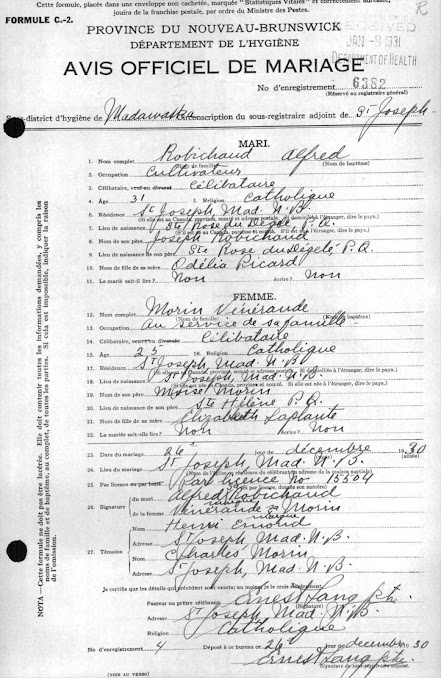 Cette formule, placée dans une enveloppe non cachetée, marquée "Statistiques Vitales" et correctement adressée,
jouira de la franchise postale, par ordre du Ministre des Postes.
R
FORMULE C.-2.
PROVINCE DU NOUVEAU-BRUNSWICK
DÉPARTEMENT DE L'HYGIÈNE
JAN -8 1931
DEPARTMENT OF HEALTH
AVIS OFFICIEL DE MARIAGE
No d'enregistrement 6382
(Réservé au registraire général)
Sous-district d'hygiène de Madawaska Circonscription du sous-registraire adjoint de St Joseph
MARI.
1. Nom complet Robichaud Alfred
(Nom de famille) (Nom de baptême)
2. Occupation Cultivateur
3. Célibataire, veuf ou divorcé Célibataire
4. Age 31 5. Religion Catholique
6. Résidence St Joseph, Mad. N.B.
(S'il est au Canada, province, comté et adresse postale. Si domicilié à l'étranger, dire le pays.)
7. Lieu de naissance Ste Rose du Dégelé P.Q.
8. Nom de son père Joseph Robichaud
9. Lieu de naissance de son père Ste Rose du Dégelé P.Q.
10. Nom de fille de sa mère Odélia Picard
11. Le marié sait-il lire? Non écrire? Non
FEMME.
12. Nom complet Morin Vénérande
(Nom de famille) (Nom de baptême)
13. Occupation Au service de sa famille
14. Célibataire, veuve ou divorcée Célibataire
15. Age 25 16. Religion Catholique
17. Résidence St Joseph, Mad. N.B.
18. Lieu de naissance St Joseph, Mad. N.B.
19. Nom de son père Moïse Morin
20. Lieu de naissance de son père Ste Hélène P.Q.
21. Nom de fille de sa mère Elizabeth Laplante
22. La mariée sait-elle lire? Non écrire? Non
23. Date du mariage 26 jour de décembre 1930
24. Lieu du mariage St Joseph, Mad. N.B.
25. Par licence ou par bans Par licence No. 15504
(Si par licence, donnez son numéro)
26. Signature du marié Alfred Robichaud
marque
de la mariée Vénérande Morin
marque
27. Témoins Nom Henri Emond
Adresse St Joseph, Mad. N.B.
Nom Charles Morin
Adresse St Joseph, Mad. N.B.
Je certifie que les détails qui précèdent sont exacts; au moins je le crois sincèrement.
Pasteur ou prêtre célébrant Ernest Lang ptre
(Signature)
Adresse St Joseph Mad. N.B.
Religion Catholique
No d'enregistrement 4 Déposé à ce bureau ce 26 jour de décembre 1930
Ernest Lang ptre
Signature du sous-registraire adjoint.
(VOIR AU VERSO)
NOTA — Cette formule ne doit pas être lacérée. Elle doit contenir toutes les informations demandées, y compris les
noms de famille et de baptême, au complet, de toutes les parties. Si cela est impossible, indiquer la raison
de l'omission.